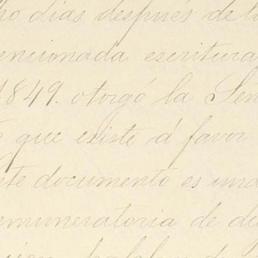 ho dias después de la
encionada escritura
1849. otorgó la Sen
que existe á favor
nte documento es una
emuneratoria de de